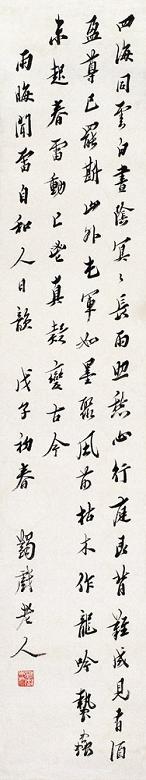 四海同雲白晝陰冥〻長雨愁心行庭艮背難成見有酒
盈尊已罷斟山外屯軍如墨聚風前枯木作龍吟蟄蟲
未起春雷動已覺真疑變古今
雨晦聞雷自和人日韻 戊子初春 蠲戲老人